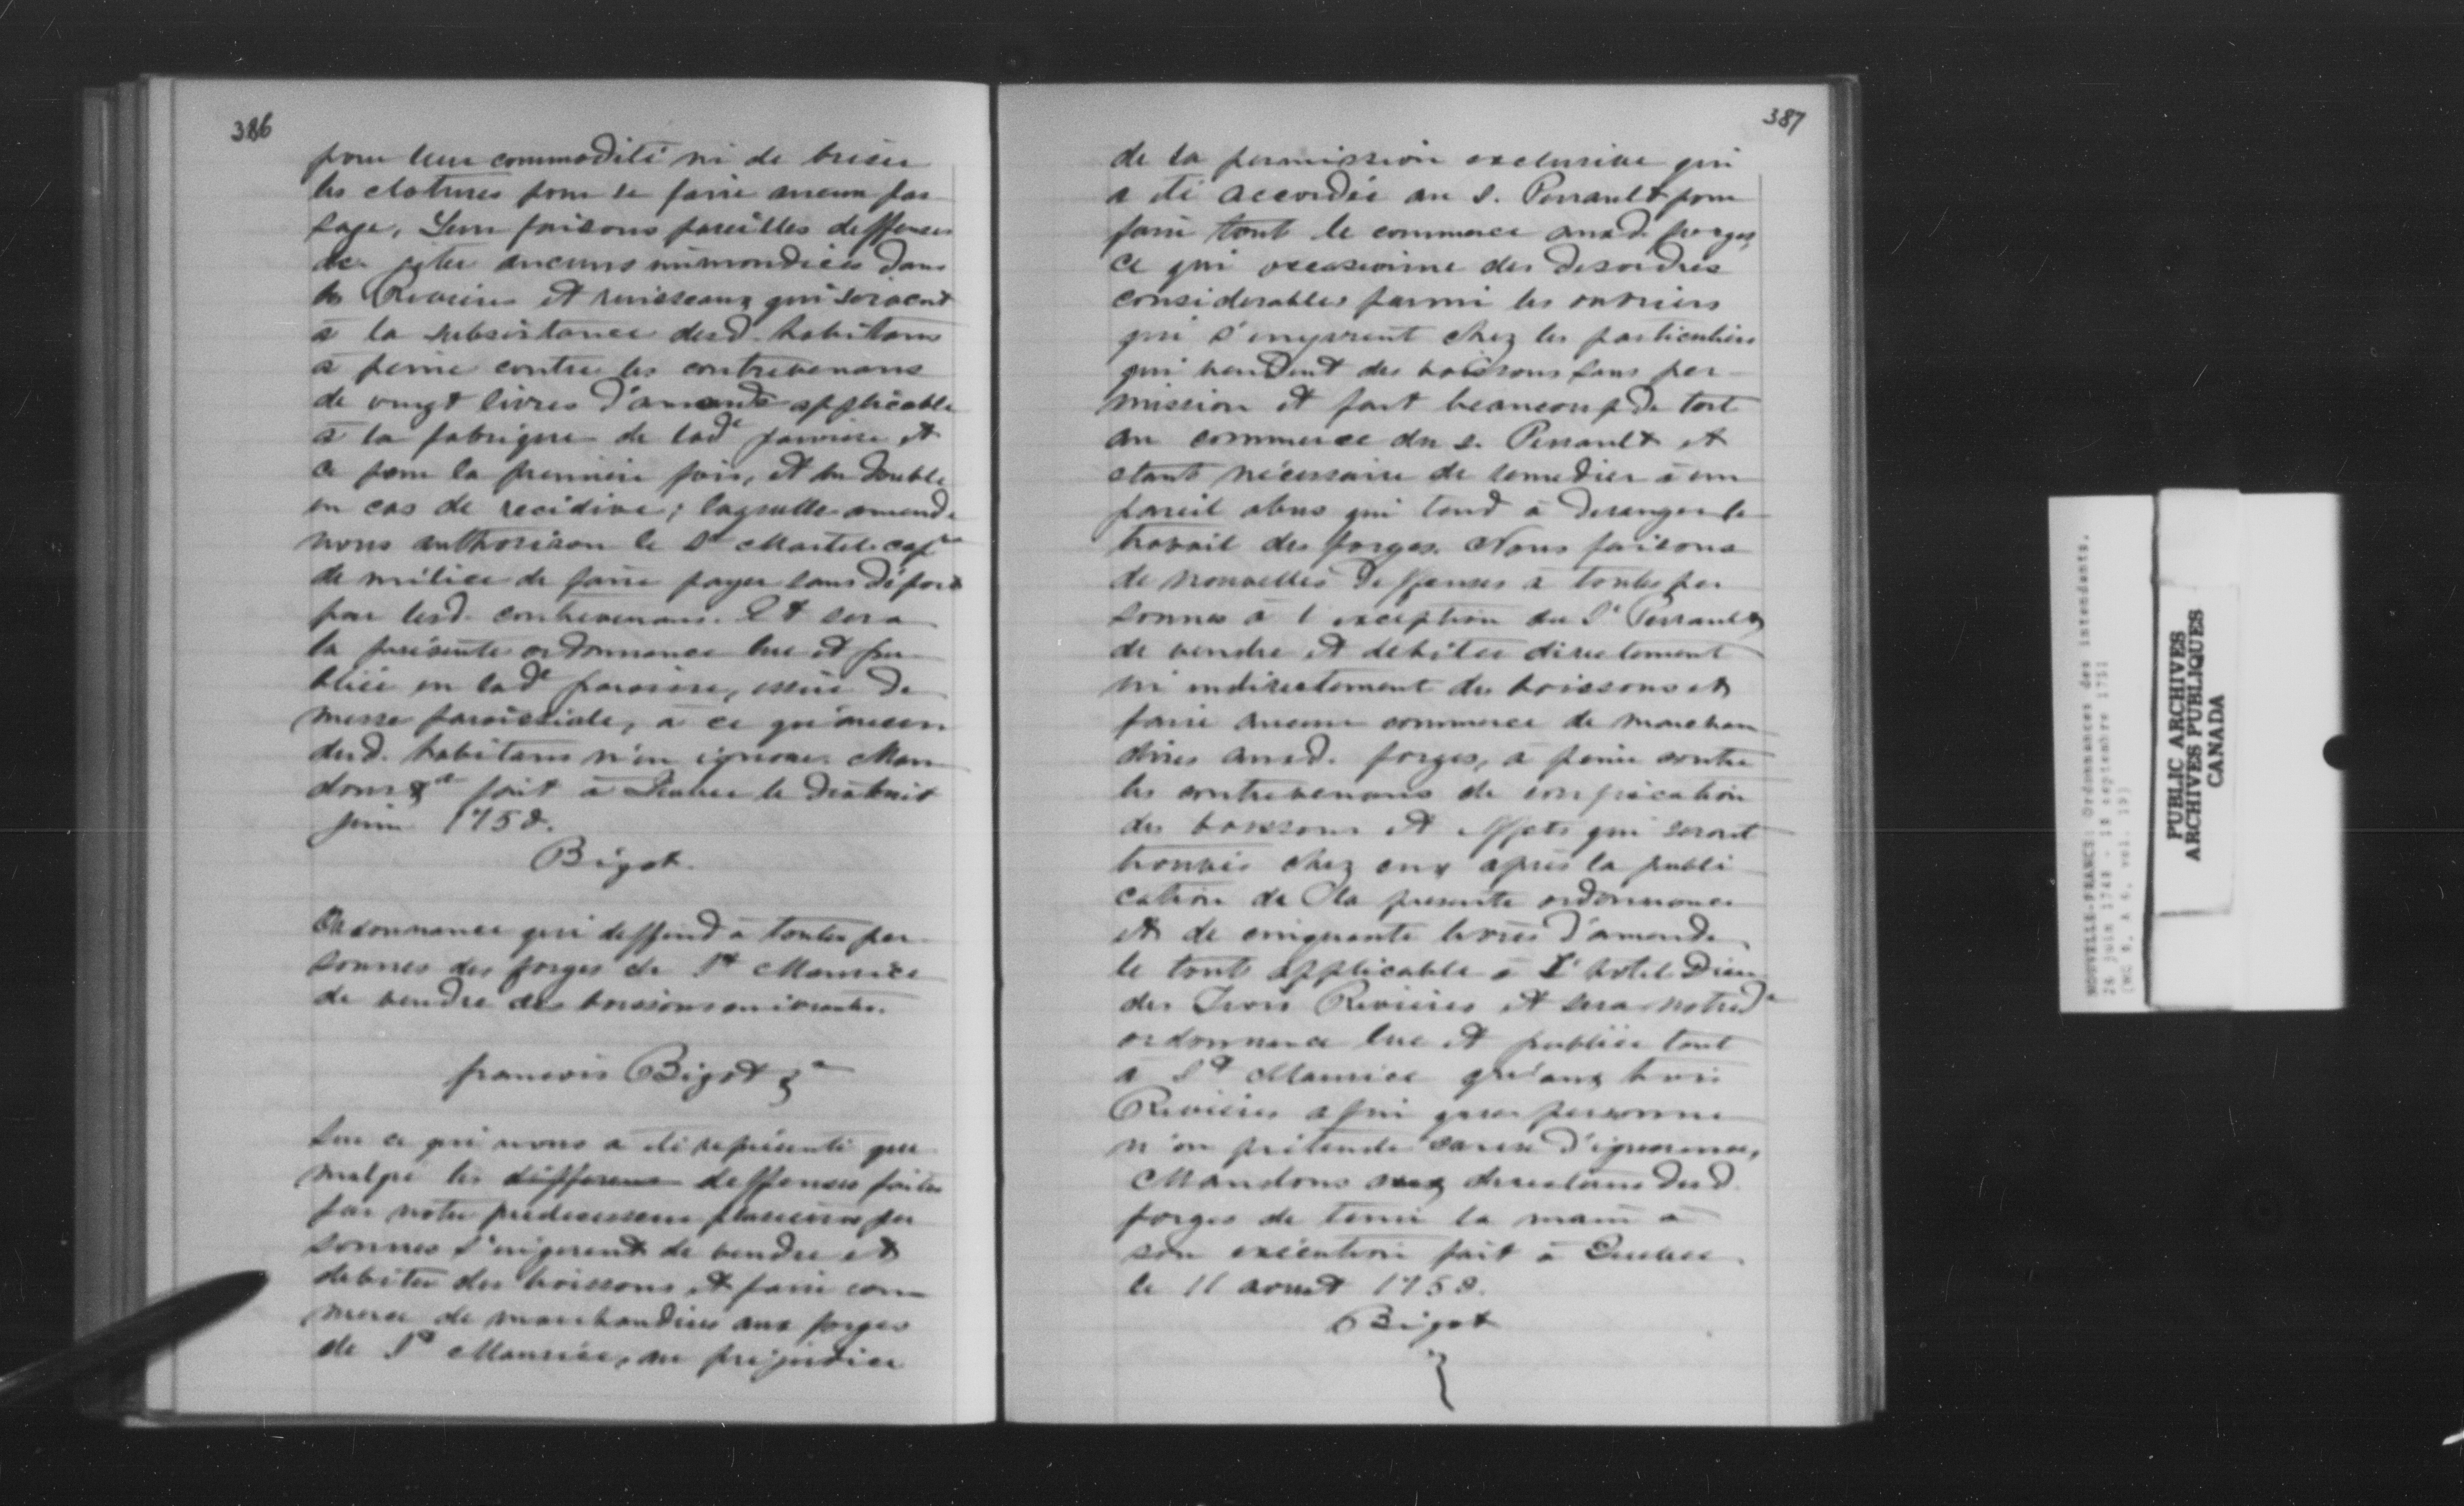 386
pour leur commodité ni de briser
les clotures pour se faire aucun pas
sage, Leur faisons pareilles deffenses
de jetter aucuns immondices dans
les Rivieres et ruisseaux qui servent
à la subsistance desd. habitans
à peine contre les contrevenans
de vingt livres d'amende applicable
à la fabrique de lad.e paroisse et
ce pour la premiere fois, et du double
en cas de recidive; laquelle amende
nous authorison le Sr Martel cap.ne
de milice de faire payer sans déport
par lesd. contrevenans. Et sera
la présente ordonnance lue et pu
bliée en lad.e paroisse, issue de
messe paroissiale, à ce qu'aucun
desd. habitans n'en ignore. Man
dons &a fait à Quebec le dix huit
juin 1750.
Bigot.
Ordonnance qui deffend à toutes per
sonnes des forges de St Maurice
de vendre des boissons enivrantes.
francois Bigot &a
Sur ce qui nous a été représenté que
malgré les differens deffenses faites
par notre predecesseur plusieurs per
sonnes s'ingerent de vendre et
debiter des boissons et faire com
merce de marchandises aux forges
de St Maurice, au préjudice
387
de la permission exclusive qui
a été accordée au S. Perrault pour
faire tout le commerce auxd. forges,
ce qui occasionne des desordres
considerables parmi les ouvriers
qui s'enyvrent chez les particuliers
qui vendent des boissons sans per-
mission et fait beaucoup de tort
au commerce du s. Perrault et
etant nécessaire de remedier à un
pareil abus qui tend à deranger le
travail des forges. Nous faisons
de nouvelles deffenses à toutes per
sonnes à l'exception du Sr Perrault
de vendre et debiter directement
ni indirectement des boissons et
faire aucun commerce de marchan
dises auxd. forges, à peine contre
les contrevenans de confiscation
des boissons et effets qui seront
trouvés chez eux après la publi
cation de la presente ordonnance
et de cinquante livres d'amende
le tout applicable à L'hotel Dieu
des Trois Rivieres et sera notred.e
ordonnance lue et publiée tant
a St Maurice qu'aux trois
Rivieres afin que personne
n'en prétende cause d'ignorance,
Mandons aux directeurs desd.
forges de tenir la main à
son exécution fait à Quebec
le 11 aoust 1750.
Bigot
NOUVELLE-FRANCE: Ordonnances des intendants.
PUBLIC ARCHIVES
ARCHIVES PUBLIQUES
CANADA